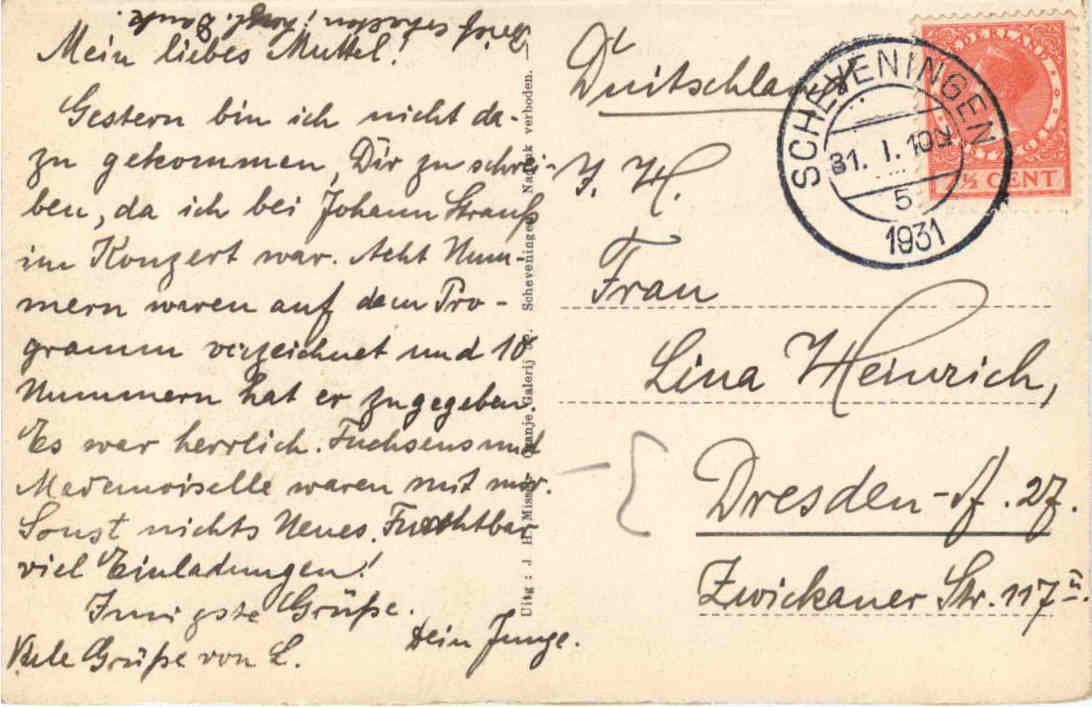 Mein liebes Muttel!
Gestern bin ich nicht da-
zu gekommen, Dir zu schrei-
ben, da ich bei Johann Strauß
im Konzert war. Acht Num-
mern waren auf dem Pro-
gramm verzeichnet und 10
Nummern hat er zugegeben.
Es war herrlich. Fuchsens und
Mademoiselle waren mit mir.
Sonst nichts Neues. Furchtbar
viel Einladungen!
Innigste Grüße.
Dein Junge.
Viele Grüße von L.
Uitg : J. H. Oranje Galerij Scheveningen. Nadruk verboden. —
Duitschland
NEDERLAND
7½ CENT
SCHEVENINGEN
31. I. 10
5
1931
I. H.
Frau
Lina Heinrich,
Dresden-A. 27.
Zwickauer Str. 117 II.